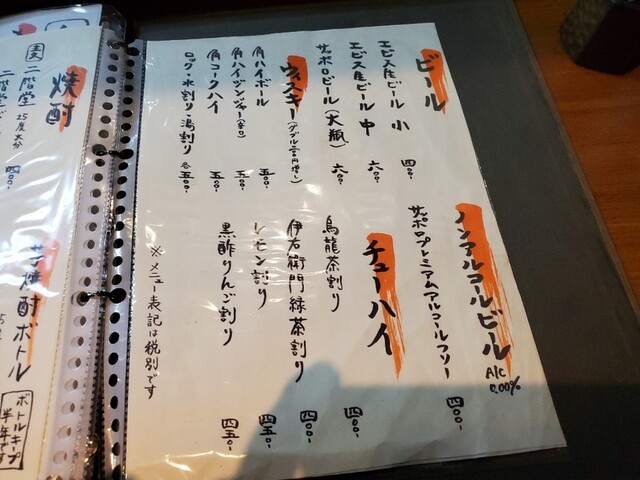 ビール
エビス生ビール 小 四〇〇.
エビス生ビール 中 六〇〇.
サッポロビール(大瓶) 六〇〇.
ウィスキー
角ハイボール 五〇〇.
角ハイジンジャー(辛口) 五〇〇.
角コークハイ 五〇〇.
ロック・水割り・湯割り 各五〇〇.
ノンアルコールビール
Alc 0.00%
サッポロプレミアムアルコールフリー 四〇〇.
チューハイ
烏龍茶割り 四〇〇.
伊右衛門緑茶割り 四〇〇.
レモン割り 四五〇.
黒酢りんご割り 四五〇.
※メニュー表記は税別です
焼酎
麦
二階堂 25度 大分 四〇〇.
二階堂
芋焼酎ボトル
ボトルキープ
半年です